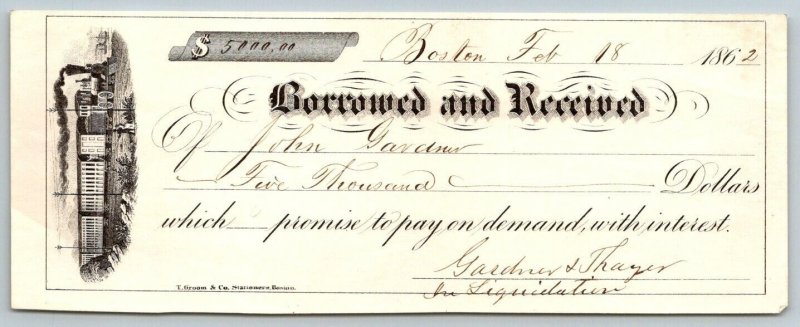 $ 5000.00
Boston Feb 18 1862
Borrowed and Received
Of John Gardner
Five Thousand Dollars
which promise to pay on demand, with interest.
Gardner & Thayer
In Liquidation
T. Groom & Co. Stationers, Boston.